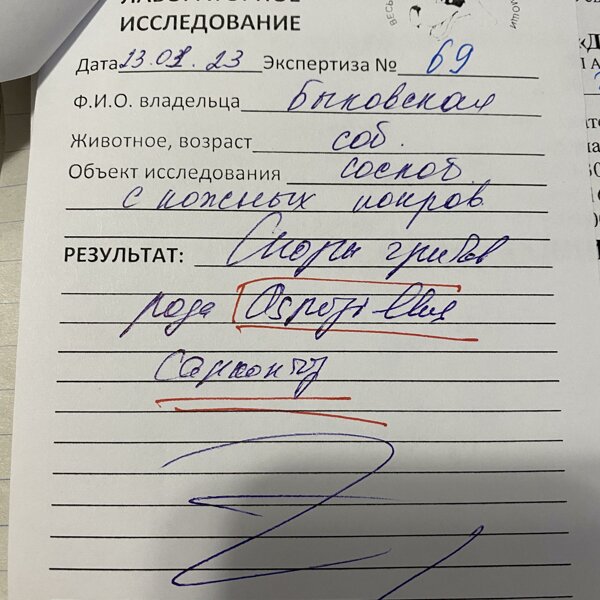 ЛАБОРАТОРНОЕ
ИССЛЕДОВАНИЕ
Дата 23.01.23 Экспертиза № 69
Ф.И.О. владельца Быковская
Животное, возраст соб.
Объект исследования соскоб
с кожных покров.
РЕЗУЛЬТАТ: Споры грибов
рода Aspergillus
Саркоптоз